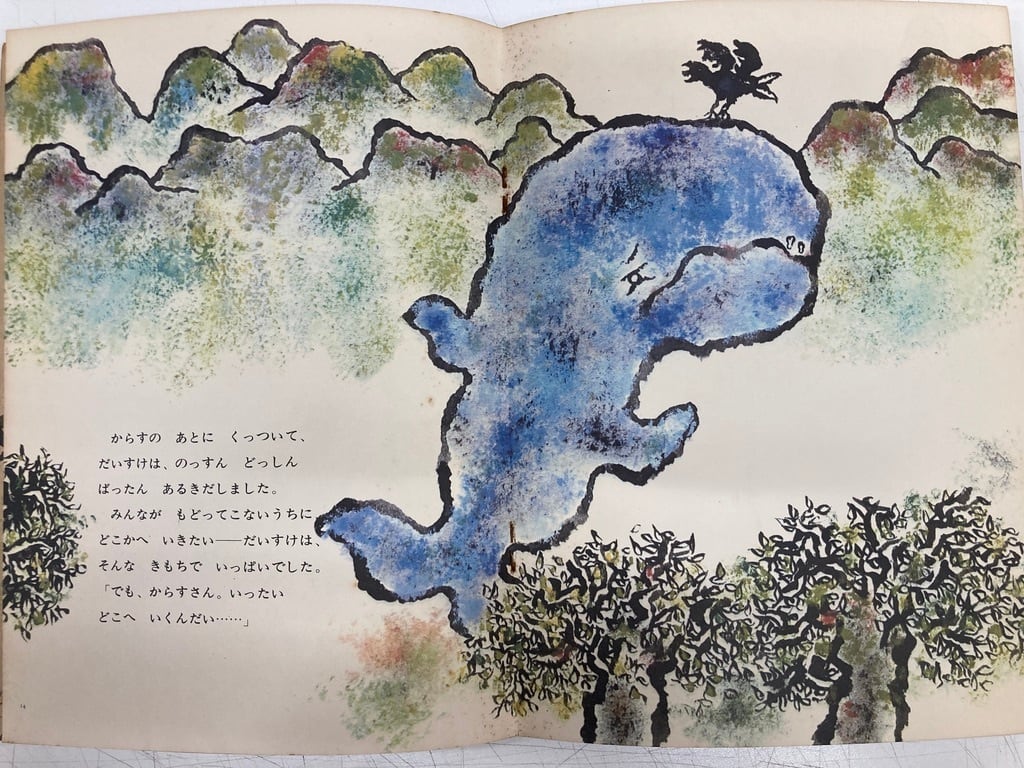 からすの　あとに　くっついて、
だいすけは、のっすん　どっしん
ばったん　あるきだしました。
　みんなが　もどってこないうちに
どこかへ　いきたい――だいすけは、
そんな　きもちで　いっぱいでした。
「でも、からすさん。いったい
どこへ　いくんだい……」
14